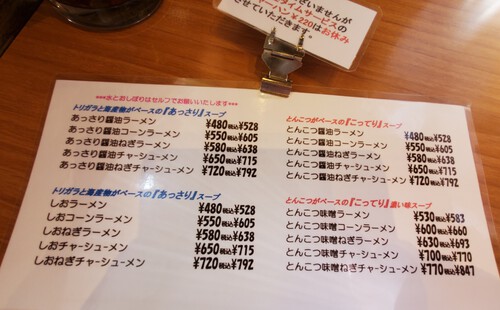 いませんが
タイムサービスの
チャーハン¥220はお休み
させていただきます。
***水とおしぼりはセルフでお願いいたします***
トリガラと海産物がベースの『あっさり』スープ
あっさり醤油ラーメン ¥480税込¥528
あっさり醤油コーンラーメン ¥550税込¥605
あっさり醤油ねぎラーメン ¥580税込¥638
あっさり醤油チャーシューメン ¥650税込¥715
あっさり醤油ねぎチャーシューメン ¥720税込¥792
トリガラと海産物がベースの『あっさり』スープ
しおラーメン ¥480税込¥528
しおコーンラーメン ¥550税込¥605
しおねぎラーメン ¥580税込¥638
しおチャーシューメン ¥650税込¥715
しおねぎチャーシューメン ¥720税込¥792
とんこつがベースの『こってり』スープ
とんこつ醤油ラーメン ¥480税込¥528
とんこつ醤油コーンラーメン ¥550税込¥605
とんこつ醤油ねぎラーメン ¥580税込¥638
とんこつ醤油チャーシューメン ¥650税込¥715
とんこつ醤油ねぎチャーシューメン ¥720税込¥792
とんこつがベースの『こってり』濃い味スープ
とんこつ味噌ラーメン ¥530税込¥583
とんこつ味噌コーンラーメン ¥600税込¥660
とんこつ味噌ねぎラーメン ¥630税込¥693
とんこつ味噌チャーシューメン ¥700税込¥770
とんこつ味噌ねぎチャーシューメン ¥770税込¥847